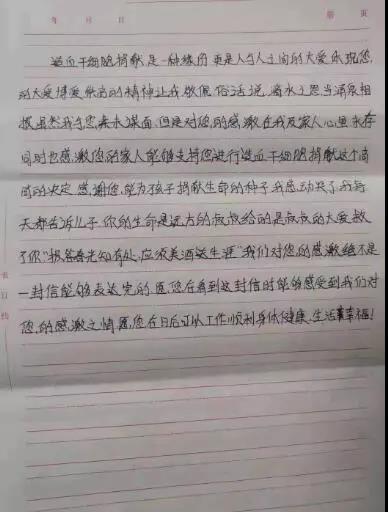 年 月 日 第 页
造血干细胞捐献是一种缘份更是人与人之间的大爱体现您
的大爱博爱崇高的精神让我敬佩俗话说滴水之恩当涌泉相
报虽然我与您素未谋面,但是对您的感激在我及家人心里永存
同时也感激您的家人能够支持您进行造血干细胞捐献这个高
尚的决定 感谢您能为孩子捐献生命的种子我感动哭了我每
天都告诉儿子你的生命是远方的叔叔给的是叔叔的大爱救
了你"报答春光知有处,应须美酒送生涯"我们对您的感激绝不是
一封信能够表达完的愿您在看到这封信时能够感受到我们对
您的感激之情愿您在日后可以工作顺利身体健康、生活幸福!
装
订
线